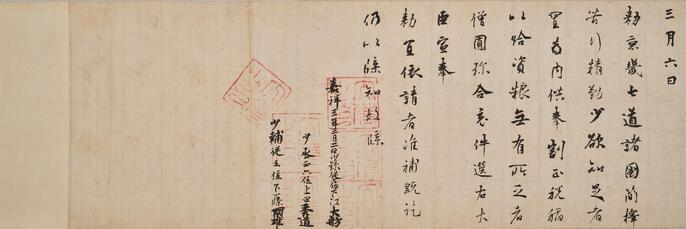 三月六日
勅京畿七道諸國簡擇
苦行精勤少欲知足者
置為内供奉割正税稲
以給資粮無有所乏者
僧圓珍合充件選右大
臣宣奉
勅宜依請者准補既訖
仍以牒知故牒
嘉祥三年三月二日少録従位下江大
少丞正六位上
少輔従五位下藤